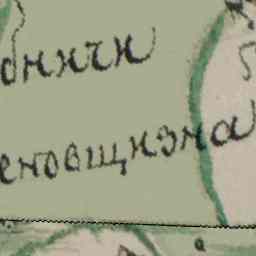 бничи
еновщизна